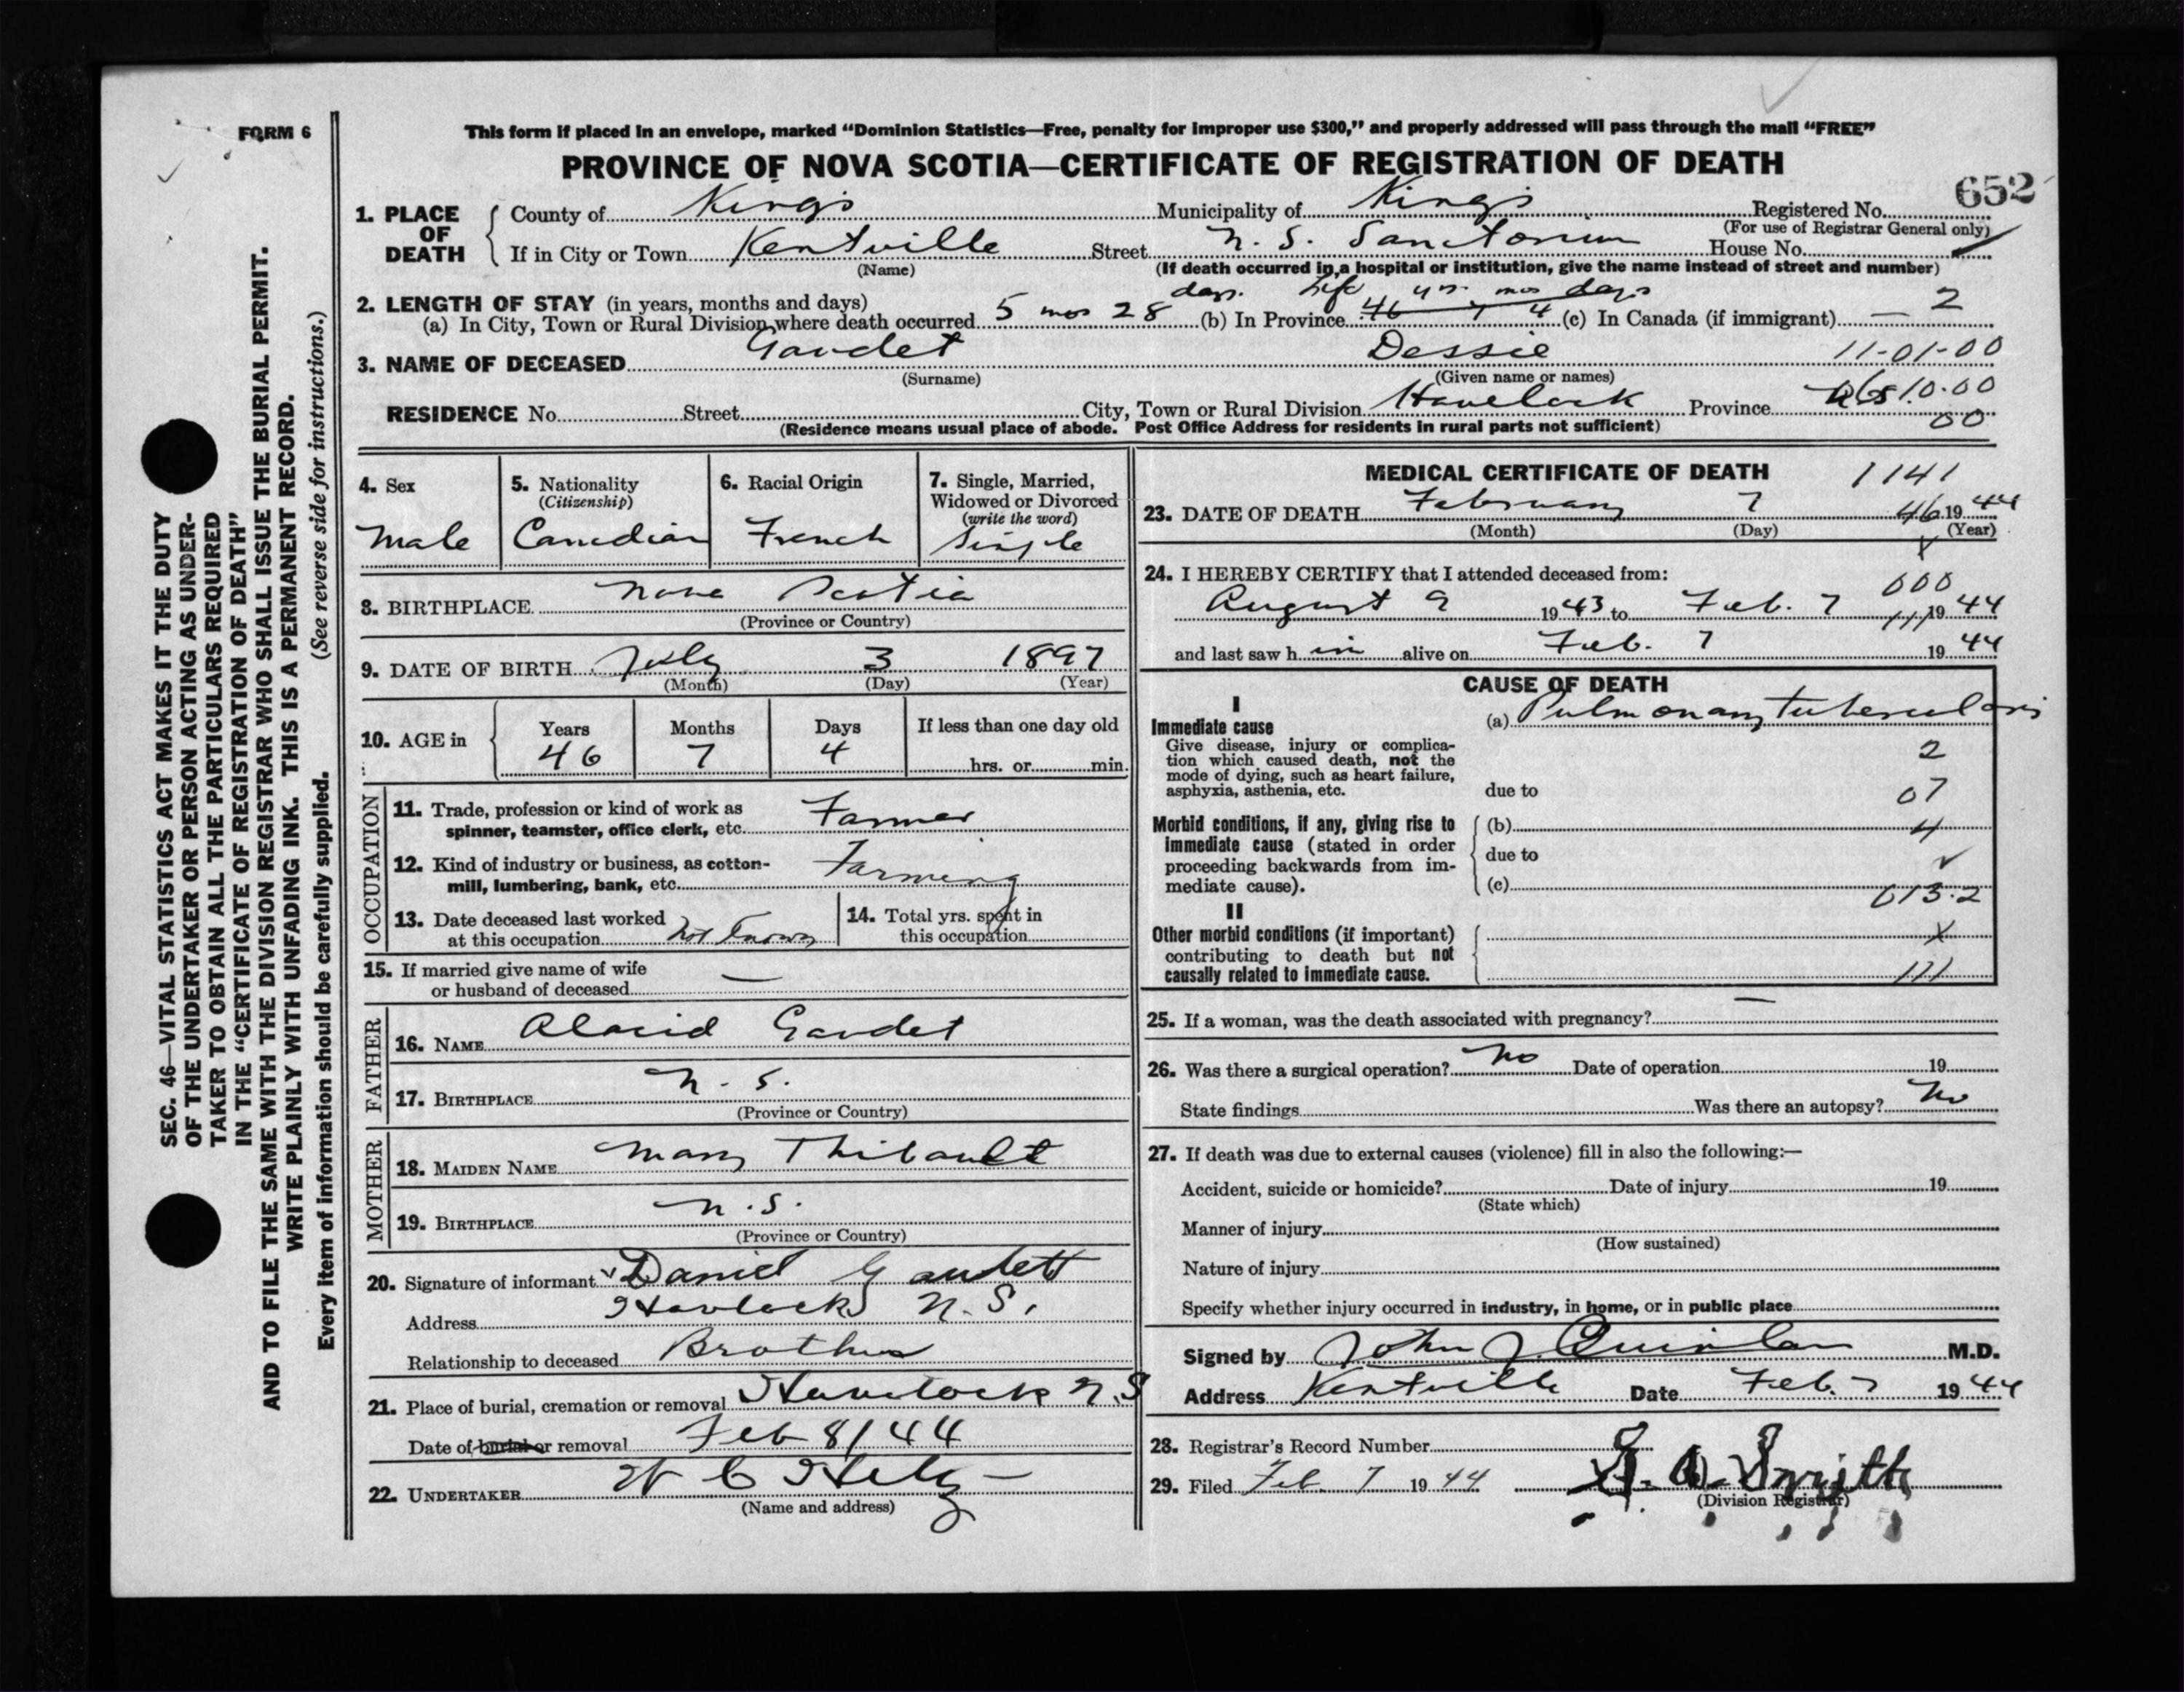 FORM 6
This form if placed in an envelope, marked “Dominion Statistics—Free, penalty for improper use $300,” and properly addressed will pass through the mail “FREE”
PROVINCE OF NOVA SCOTIA—CERTIFICATE OF REGISTRATION OF DEATH
652
1. PLACE OF DEATH { County of Kings Municipality of Kings Registered No.
(For use of Registrar General only)
If in City or Town Kentville Street N. S. Sanctorium House No.
(Name) (If death occurred in a hospital or institution, give the name instead of street and number)
2. LENGTH OF STAY (in years, months and days) days. life yrs mos days
(a) In City, Town or Rural Division where death occurred 5 mos 28 (b) In Province 46 7 4 (c) In Canada (if immigrant) — 2
3. NAME OF DECEASED Gaudet Dessie 11-01-00
(Surname) (Given name or names)
RESIDENCE No. Street City, Town or Rural Division Havelock Province 10.00
(Residence means usual place of abode. Post Office Address for residents in rural parts not sufficient) 00
4. Sex
Male
5. Nationality
(Citizenship)
Canadian
6. Racial Origin
French
7. Single, Married, Widowed or Divorced
(write the word)
Single
8. BIRTHPLACE Nova Scotia
(Province or Country)
9. DATE OF BIRTH July 3 1897
(Month) (Day) (Year)
10. AGE in { Years Months Days If less than one day old
46 7 4 hrs. or min.
OCCUPATION
11. Trade, profession or kind of work as
spinner, teamster, office clerk, etc. Farmer
12. Kind of industry or business, as cotton-
mill, lumbering, bank, etc. Farming
13. Date deceased last worked
at this occupation not known
14. Total yrs. spent in
this occupation
15. If married give name of wife
or husband of deceased —
FATHER
16. NAME Gaudet
17. BIRTHPLACE N. S.
(Province or Country)
MOTHER
18. MAIDEN NAME Mary Thibault
19. BIRTHPLACE N. S.
(Province or Country)
20. Signature of informant Daniel Gaudett
Address Havlock N. S.
Relationship to deceased Brother
21. Place of burial, cremation or removal Havelock N. S
Date of burial or removal Feb 8/44
22. UNDERTAKER W C
(Name and address)
MEDICAL CERTIFICATE OF DEATH 1141
23. DATE OF DEATH February 7 46 19 44
(Month) (Day) (Year)
X
24. I HEREBY CERTIFY that I attended deceased from: 000
August 9 19 43 to Feb. 7 111 19 44
and last saw h im alive on Feb. 7 19 44
CAUSE OF DEATH
I
Immediate cause (a) Pulmonary tuberculosis
Give disease, injury or complica-
tion which caused death, not the 2
mode of dying, such as heart failure,
asphyxia, asthenia, etc. due to 07
Morbid conditions, if any, giving rise to (b) 4
immediate cause (stated in order
proceeding backwards from im- due to ✓
mediate cause). (c) 013.2
II
Other morbid conditions (if important) X
contributing to death but not
causally related to immediate cause. 111
25. If a woman, was the death associated with pregnancy? —
26. Was there a surgical operation? No Date of operation 19
State findings Was there an autopsy? No
27. If death was due to external causes (violence) fill in also the following:—
Accident, suicide or homicide? Date of injury 19
(State which)
Manner of injury
(How sustained)
Nature of injury
Specify whether injury occurred in industry, in home, or in public place
Signed by John J Quinlan M.D.
Address Kentville Date Feb. 7 19 44
28. Registrar's Record Number
29. Filed Feb. 7 19 44 Smith
(Division Registrar)
SEC. 46—VITAL STATISTICS ACT MAKES IT THE DUTY
OF THE UNDERTAKER OR PERSON ACTING AS UNDER-
TAKER TO OBTAIN ALL THE PARTICULARS REQUIRED
IN THE “CERTIFICATE OF REGISTRATION OF DEATH”
AND TO FILE THE SAME WITH THE DIVISION REGISTRAR WHO SHALL ISSUE THE BURIAL PERMIT.
WRITE PLAINLY WITH UNFADING INK. THIS IS A PERMANENT RECORD.
Every item of information should be carefully supplied. (See reverse side for instructions.)